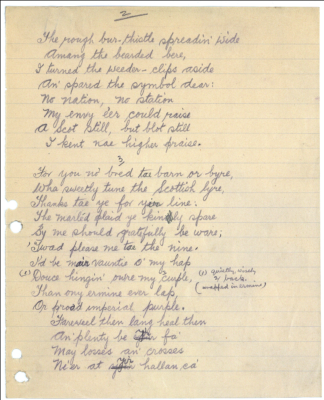 2
The rough bur-thistle spreadin' wide
Amang the bearded bere,
I turned the weeder-clips aside
An' spared the symbol dear:
No nation, no station
My envy e'er could raise
A Scot still, but blot still
I kent nae higher praise.
3
For you no' bred tae barn or byre,
Wha sweetly tune the Scottish lyre,
Thanks tae ye for your line.
The marled plaid ye kindly spare
By me should gratefully be ware;
'Twad please me tae the nine.
I'd be mair vauntie o' my hap
(1) Douce hingin' owre my curple, (1) quietly, nicely
2 back.
Than ony ermine ever lap, (wrapped in ermine)
Or proud imperial purple.
Fareweel then lang heal then
An' plenty be fa'
May losses an' crosses
Ne'er at hallan ca'